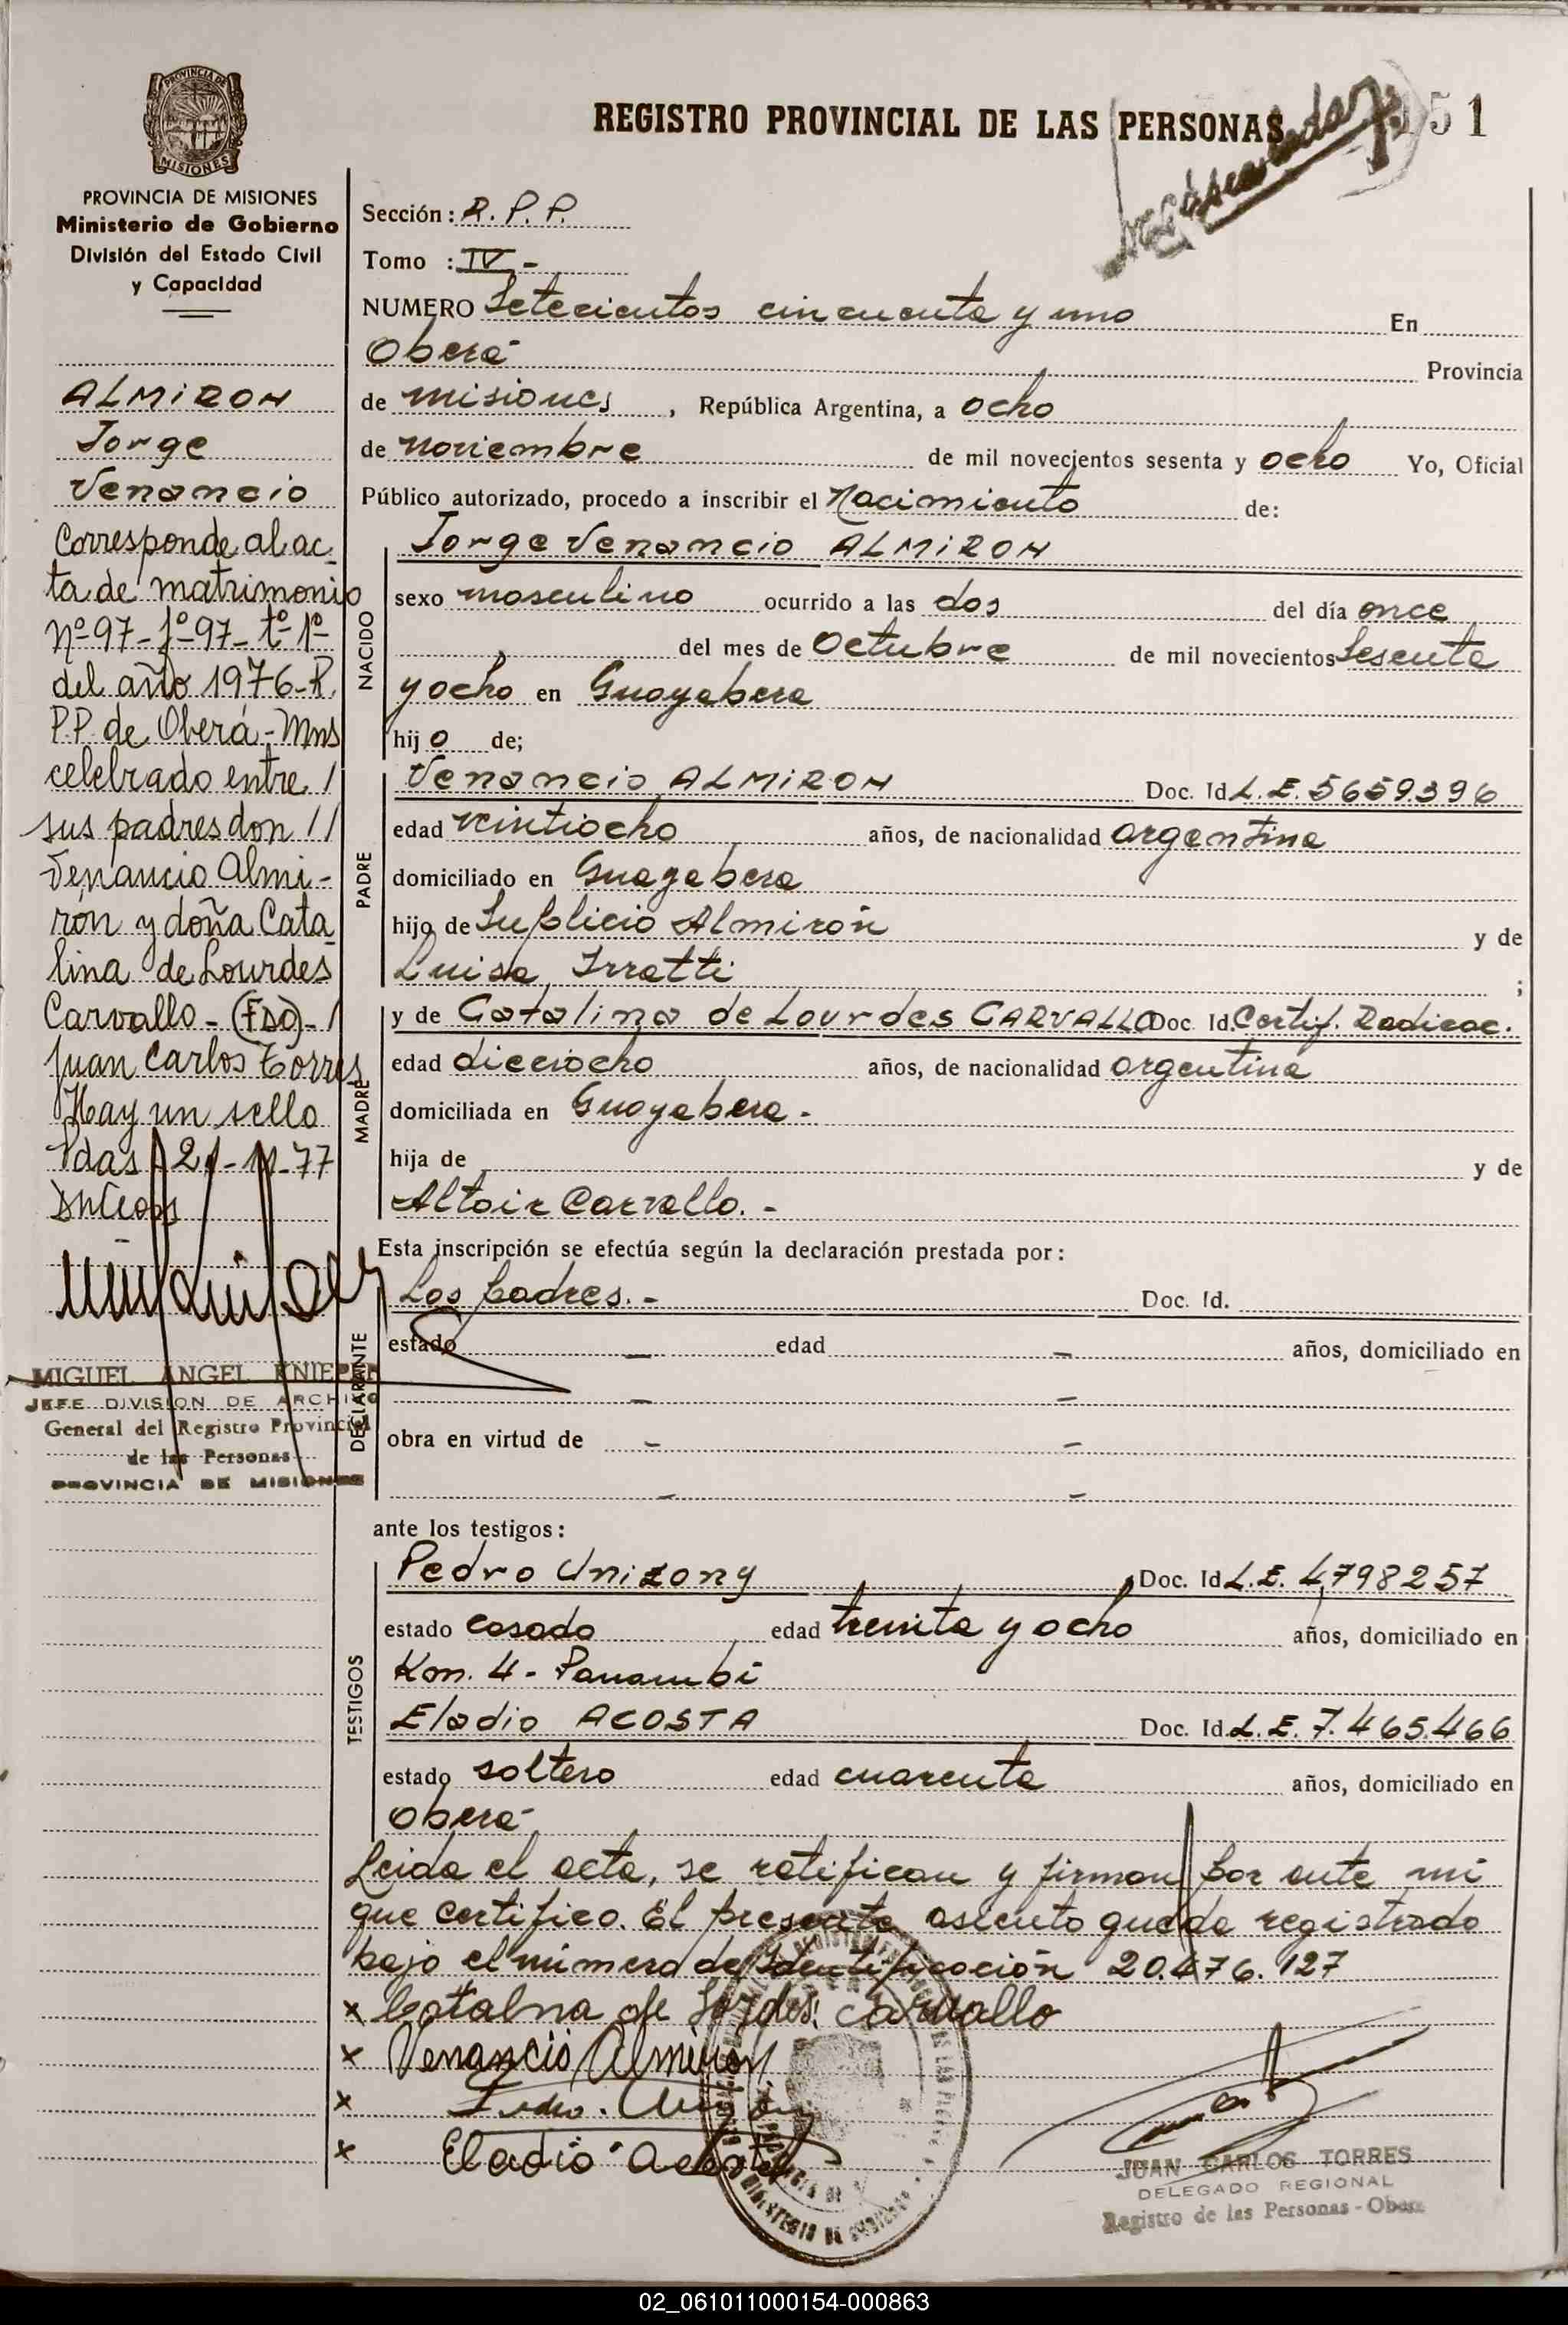 PROVINCIA DE
MISIONES
PROVINCIA DE MISIONES
Ministerio de Gobierno
División del Estado Civil
y Capacidad
ALMIRON
Jorge
Venancio
Corresponde al ac
ta de matrimonio
Nº 97-fº 97-tº 1º
del año 1976-R.
P.P. de Oberá-Mnes
celebrado entre /
sus padres don //
Venancio Almi-
rón y doña Cata
lina de Lourdes
Carvallo-(FDO)-/
Juan Carlos Torres
Hay un sello
Pdas 21-11-77
MIGUEL ANGEL KNIEPER
JEFE DIVISION DE ARCHIVO
General del Registro Provincial
de las Personas
PROVINCIA DE MISIONES
REGISTRO PROVINCIAL DE LAS PERSONAS
51
Sección: R. P. P.
Tomo : IV -
NUMERO Setecientos cincuenta y uno En
Oberá Provincia
de misiones, República Argentina, a ocho
de noviembre de mil novecientos sesenta y ocho Yo, Oficial
Público autorizado, procedo a inscribir el Nacimiento de:
NACIDO
Jorge Venancio ALMIRON
sexo masculino ocurrido a las dos del día once
del mes de Octubre de mil novecientos Sesenta
y ocho en Guayabera
hijo de;
PADRE
Venancio ALMIRON Doc. Id L.E. 5659396
edad veintiocho años, de nacionalidad argentina
domiciliado en Guayabera
hijo de Suplicio Almirón y de
Luisa Irratti ;
MADRE
y de Catalina de Lourdes CARVALLO Doc. Id. Certif. Radicac.
edad dieciocho años, de nacionalidad argentina
domiciliada en Guayabera.
hija de y de
Altair Carvallo. -
Esta inscripción se efectúa según la declaración prestada por:
DECLARANTE
Los padres. - Doc. Id.
estado — edad — años, domiciliado en
— —
obra en virtud de — —
— —
ante los testigos:
TESTIGOS
Pedro Unizony Doc. Id L.E. 4,798257
estado casado edad treinta y ocho años, domiciliado en
Km. 4 - Panambí
Eladio ACOSTA Doc. Id. L.E. 7.465.466
estado soltero edad cuarenta años, domiciliado en
Oberá
Leida el acta, se ratifican y firman por ante mi
que certifico. El presente asiento queda registrado
bajo el número de Identificación 20.476.127
x Catalna de Lordes Carvallo
x Venancio Almiron
x Pedro.
x Eladio Acosta
JUAN CARLOS TORRES
DELEGADO REGIONAL
Registro de las Personas - Oberá
02_061011000154-000863